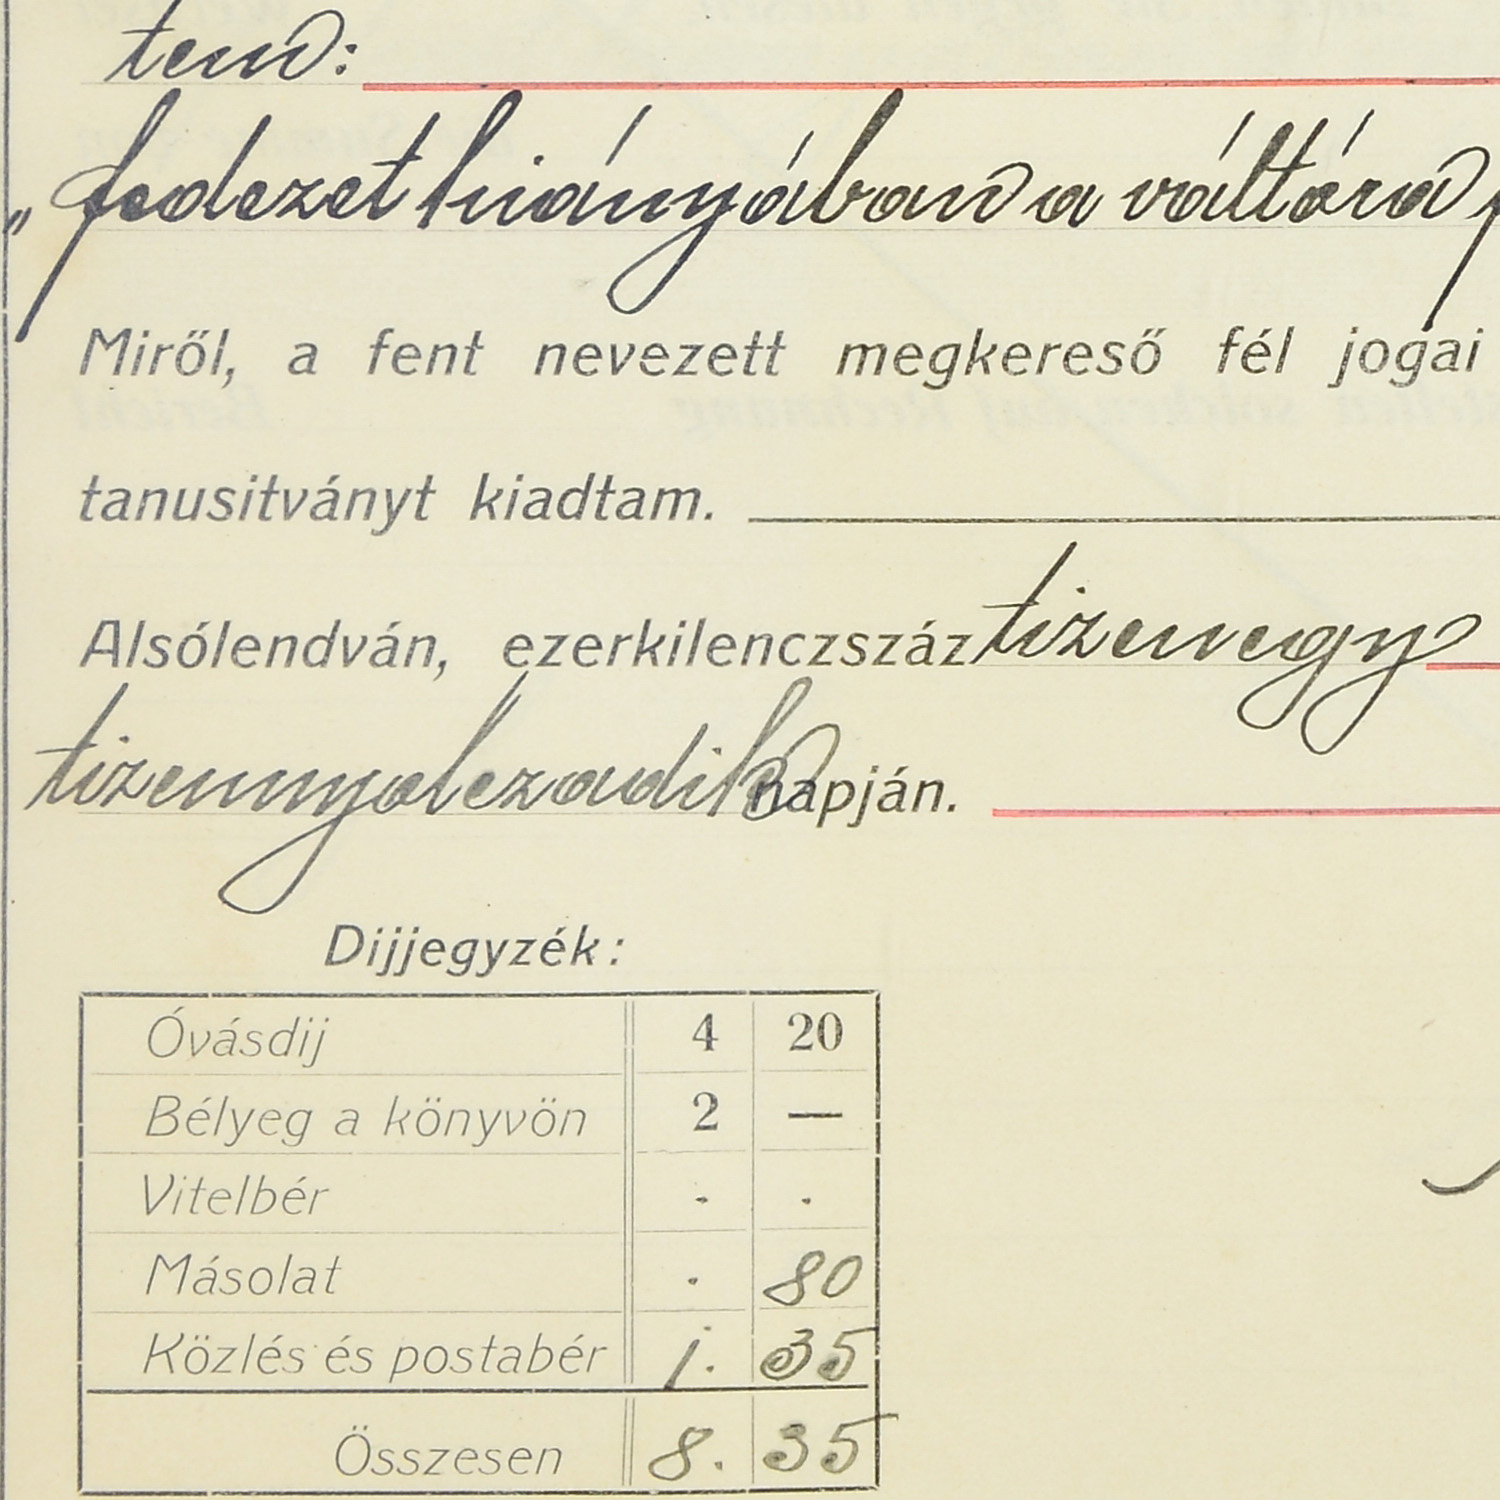 tem:
„fedezet hiányában a váltóra
Miről, a fent nevezett megkereső fél jogai
tanusitványt kiadtam.
Alsólendván, ezerkilenczszáz tizenegy
tizennyolczadik napján.
Dijjegyzék:
Óvásdij 4 20
Bélyeg a könyvön 2 —
Vitelbér . .
Másolat . 80
Közlés és postabér 1. 35
Összesen 8. 35